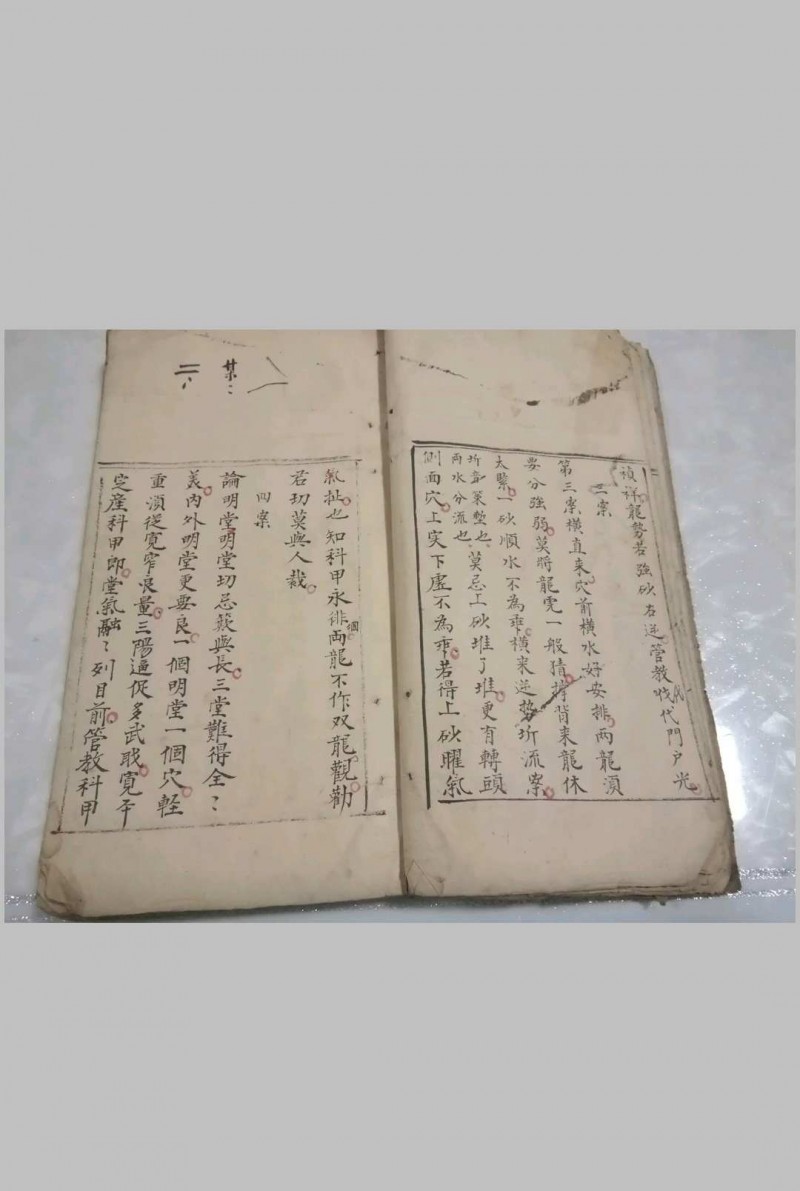 禎祥龍勢若強砂右逆管教代門户光
三案
第三案橫直来穴前橫水好安排两龍湏
要分強弱莫將龍虎一般猜撑背来龍休
太緊一砂順水不為乖橫来逆勢圻流案
莫忌上砂堆了堆更有轉頭
两水分流也
側面穴上实下虛不為乖若得上砂曜氣
氣扯也知科甲永徘個两龍不作双龍觀勸
君切莫與人裁
四案
論明堂明堂切忌簇與長三堂難得全〻
義內外明堂更要良一個明堂一個穴輕
重湏従寬窄量三陽逼促多武戝寬平
定産科甲郎堂氣融〻列目前管教科甲
二、